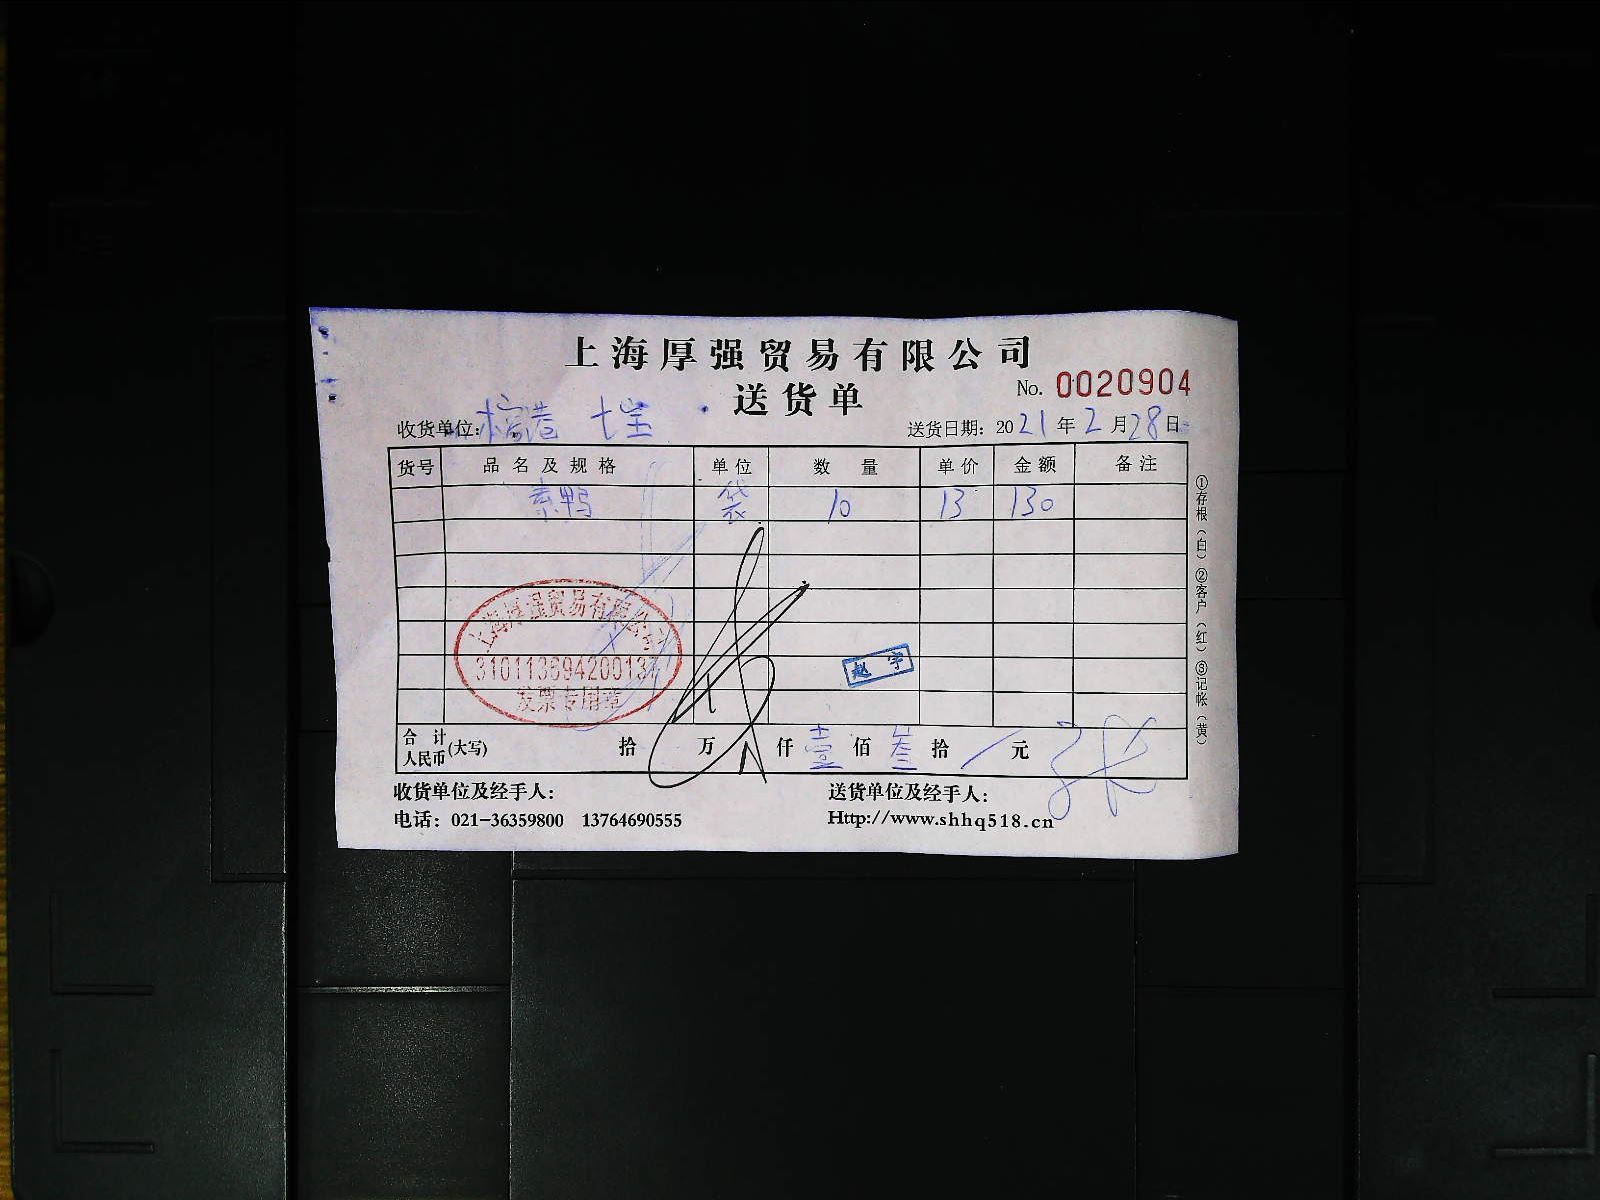 上海厚强贸易有限公司
送货单
No. 0020904
收货单位:
送货日期: 2021年2月28日
货号 品名及规格 单位 数量 单价 金额 备注
素鸭 袋 10 13 130
上海厚强贸易有限公司
发票专用章
赵宇
合计人民币(大写) 拾 万 仟 壹 佰 叁 拾 元
收货单位及经手人:
送货单位及经手人:
电话: 021-36359800 13764690555
Http://www.shhq518.cn
①存根(白) ②客户(红) ③记帐(黄)